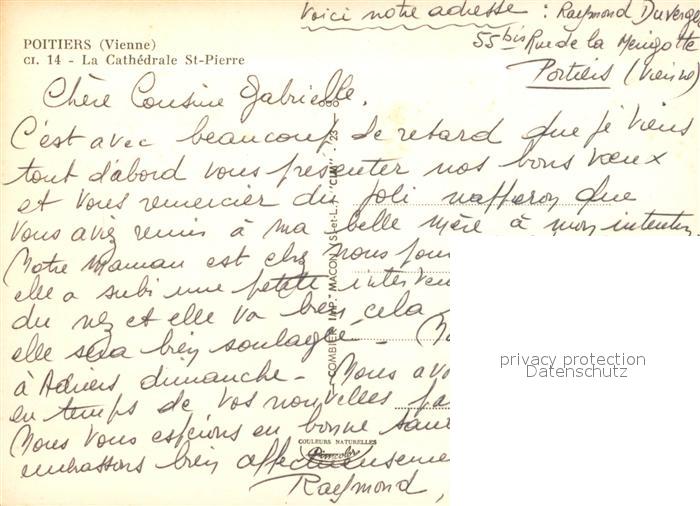 Voici notre adresse : Raymond Duverge
55 bis Rue de la Mérigotte
Poitiers (Vienne)
POITIERS (Vienne)
CI. 14 - La Cathédrale St-Pierre
Chère Cousine Gabrielle,
C'est avec beaucoup de retard que je viens
tout d'abord vous présenter nos bons vœux
et vous remercier du joli napperon que
vous aviez remis à ma belle mère à mon intention
Notre maman est chez nous
elle a subi une petite
du nez et elle va bien, cela
elle sera bien soulagée -
à Adriers dimanche - Nous
en temps de vos nouvelles
Nous vous espérons en bonne
embrassons bien
Raymond,
COMBIER IMP. MACON (S.-et-L.) "CIM"
COULEURS NATURELLES
privacy protection
Datenschutz